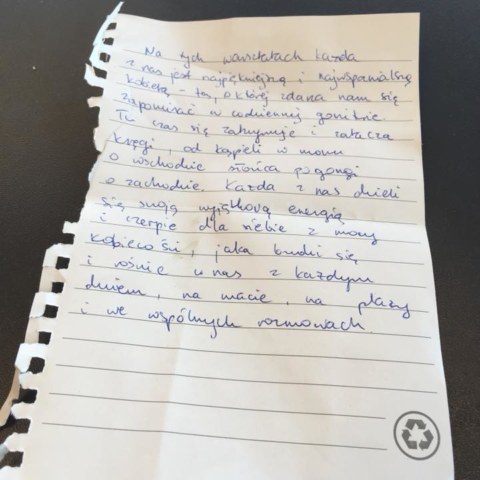 Na tych warsztatach każda
z nas jest najpiękniejszą i najwspanialszą
kobietą - tą, o której zdarza nam się
zapominać w codziennej gonitwie.
Tu czas się zatrzymuje i zatacza
kręgi, od kąpieli w morzu
o wschodzie słońca po gongi
o zachodzie. Każda z nas dzieli
się swoją wyjątkową energią
i czerpie dla siebie z mocy
kobiecości, jaka budzi się
i rośnie w nas z każdym
dniem, na macie, na plaży
i we wspólnych rozmowach